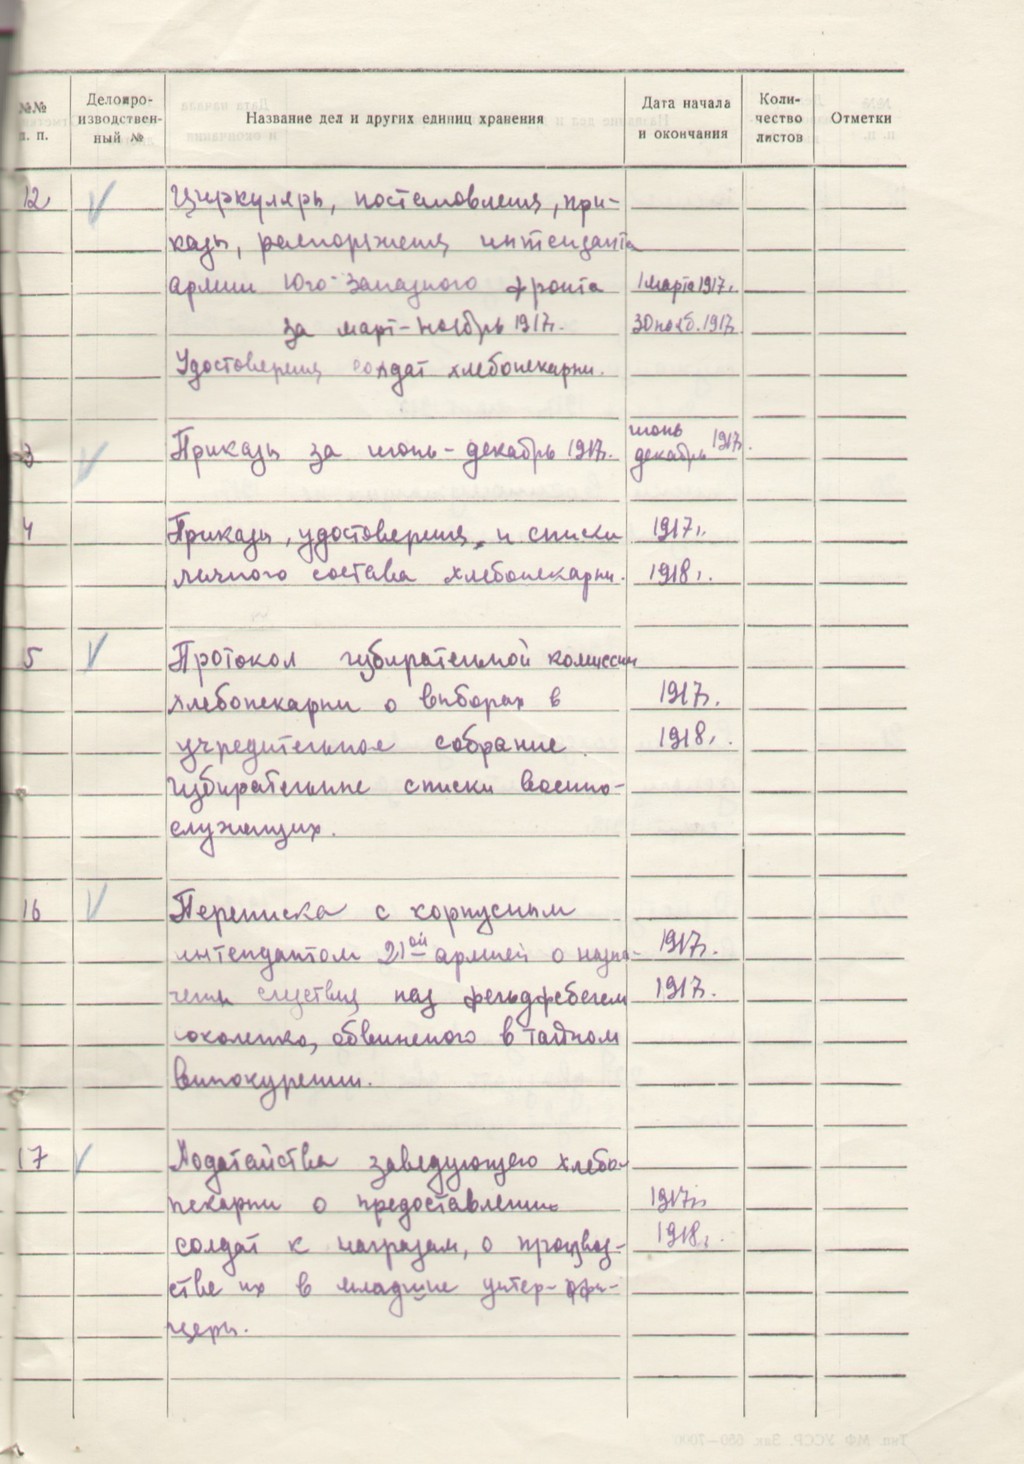 №№ п. п.
Делопро-
изводствен-
ный №
Название дел и других единиц хранения
Дата начала
и окончания
Коли-
чество
листов
Отметки
12
Циркуляры, постановления, при-
казы, распоряжения интенданта
армии Юго-Западного фронта 1 марта 1917г.
за март-ноябрь 1917г. 30 нояб. 1917г.
Удостоверения солдат хлебопекарни.
3 Приказы за июнь-декабрь 1917г. июнь декабрь 1917г.
4 Приказы, удостоверения, и списки 1917г.
личного состава хлебопекарни. 1918г.
5 Протокол избирательной комиссии
хлебопекарни о выборах в 1917г.
учредительное собрание. 1918г.
Избирательные списки военно-
служащих.
16 Переписка с корпусным
интендантом 21ой армией о назна- 1917г.
чении следствия над фельдфебелем 1917г.
обвиненого в тайном
винокурении.
17 Ходатайства заведующего хлебо-
пекарни о предоставлении 1917г.
солдат к наградам, о производ- 1918г.
стве их в младшие унтер-офи-
церы.
Тип. МФ УССР. Зак. 680—7000